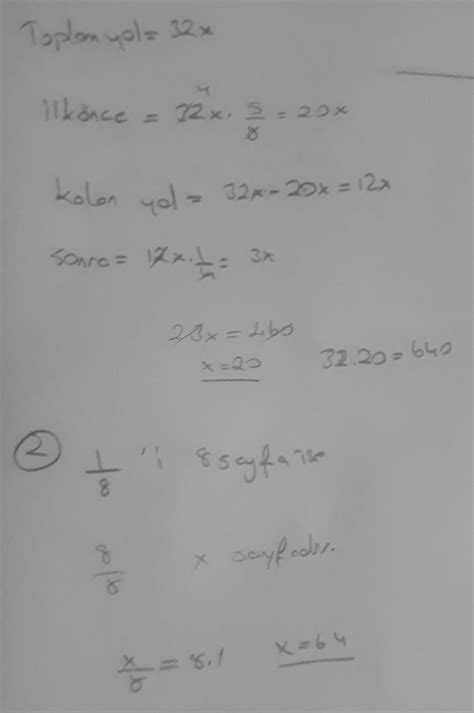 Toplam yol = 32x
ilk önce = 32x . 5/8 = 20x
4
kalan yol = 32x - 20x = 12x
sonra = 12x . 1/4 = 3x
23x = 460
x = 20
32.20 = 640
2
1/8 'i 8 sayfa ise
8/8 x sayfadır.
x/8 = 8.1 x = 64